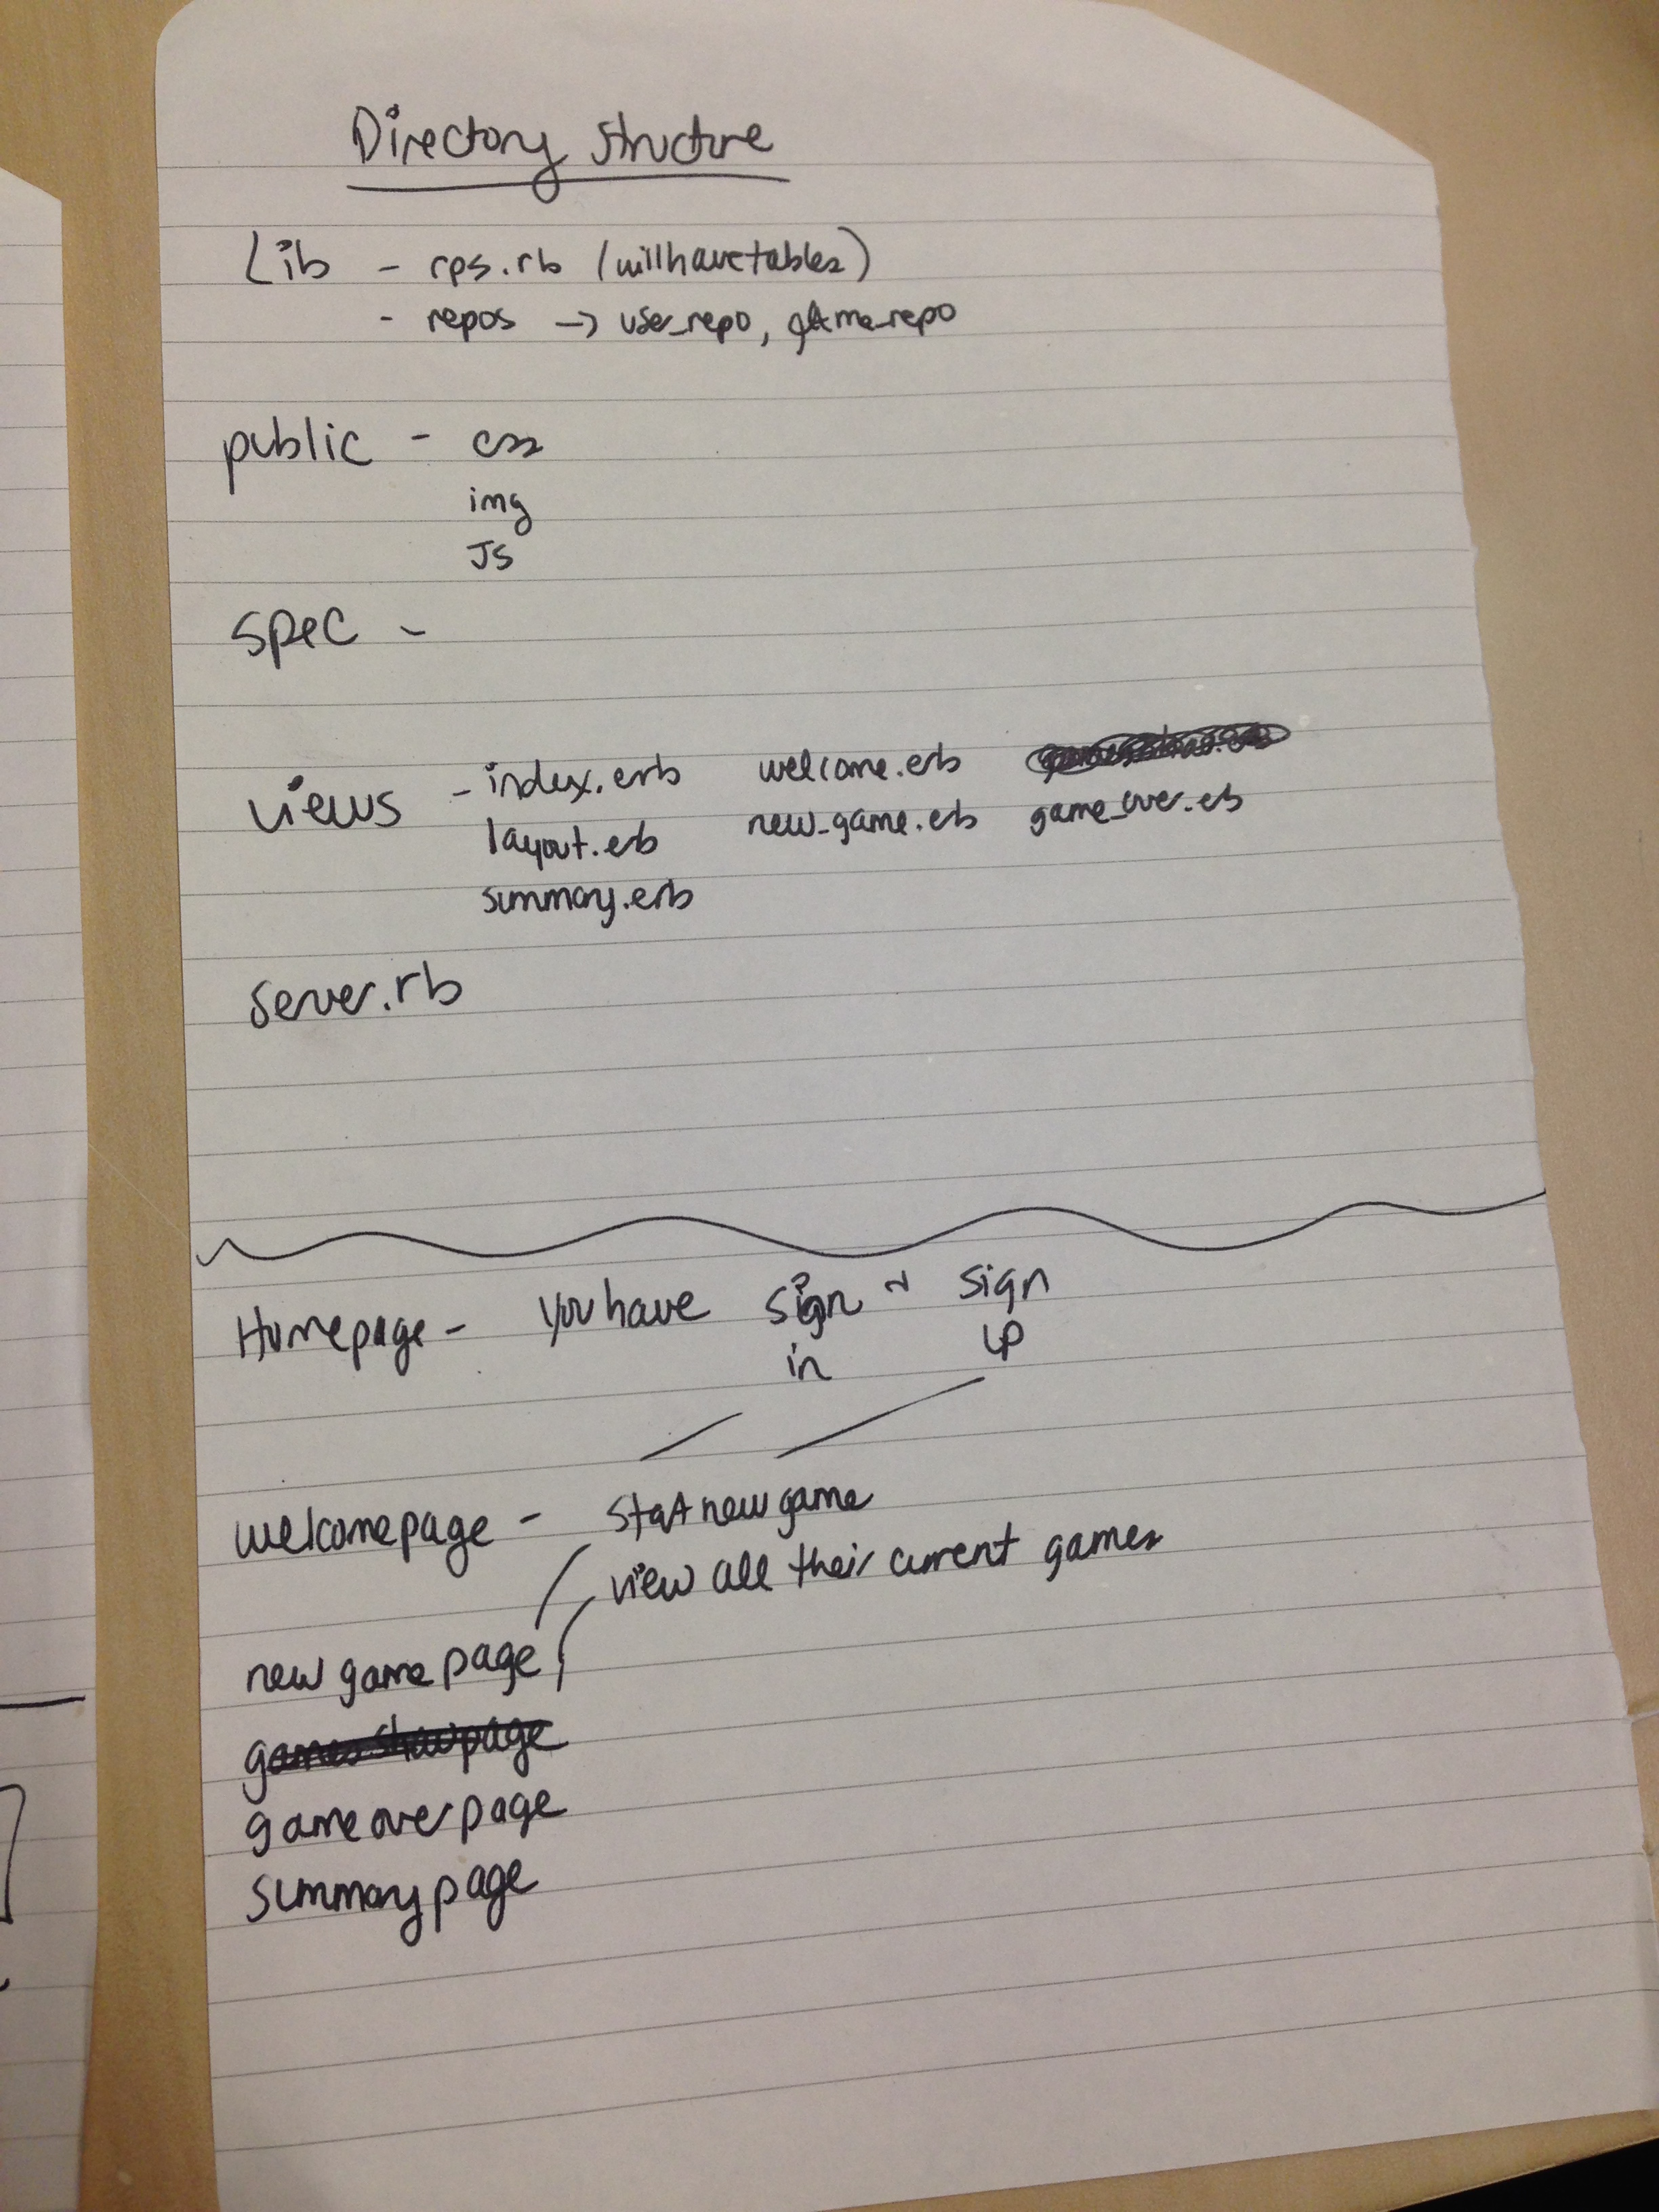 Directory Structure
Lib - rps.rb (will have tables)
- repos → user_repo, game_repo
public - css
img
JS
spec -
views - index.erb welcome.erb
layout.erb new_game.erb game_over.erb
summary.erb
server.rb
Homepage - you have sign in sign up
welcome page - start new game
view all their current games
new game page
games show page
game over page
summary page